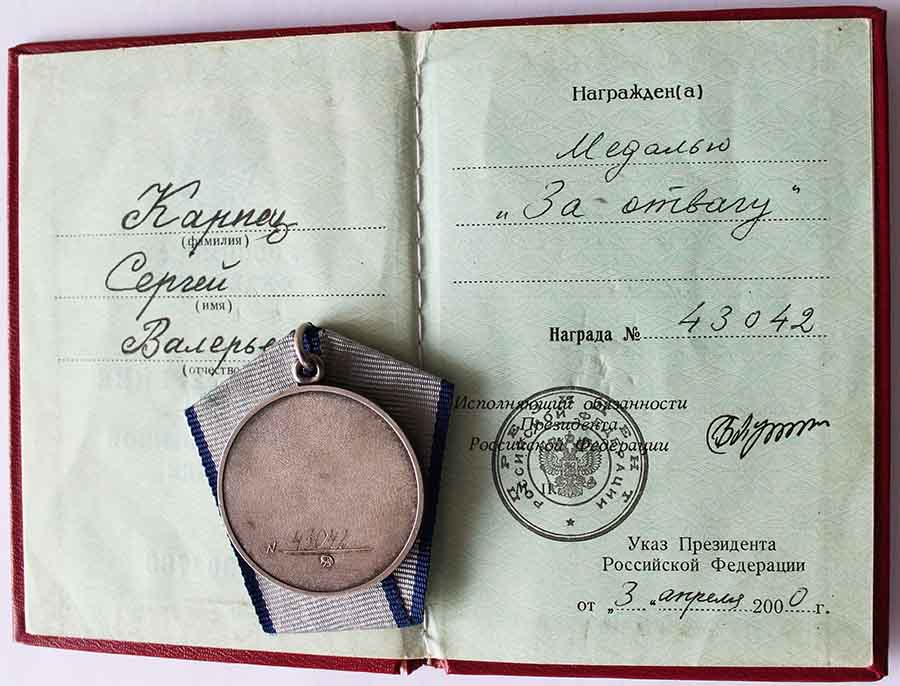 Карпец
(фамилия)
Сергей
(имя)
Валерье
(отчество
Награжден(а)
Медалью
„За отвагу"
Награда № 43042
Исполняющий обязанности
Президента
Российской Федерации
ПРЕЗИДЕНТ
РОССИЙСКОЙ ФЕДЕРАЦИИ
Указ Президента
Российской Федерации
от „3„ апреля 2000 г.
N 43042